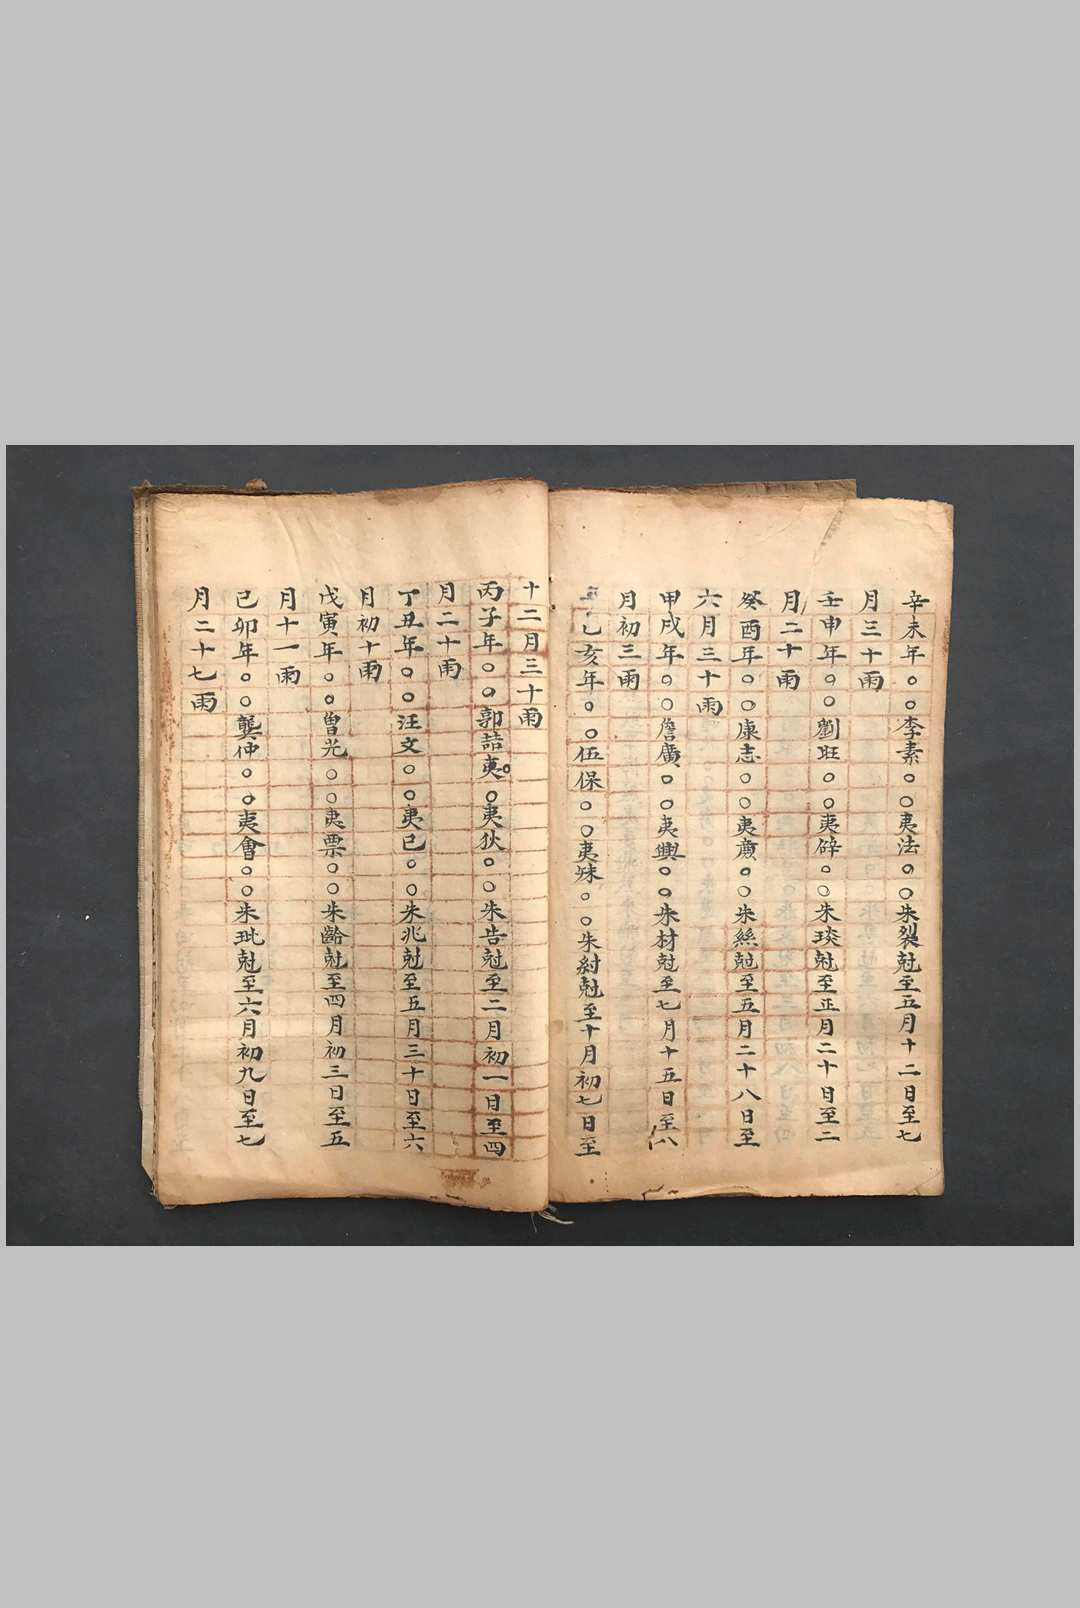 辛未年○○李素○○夷法○○朱裂尅至五月十二日至七
月三十雨
壬申年○○劉旺○○夷辟○○朱琰尅至正月二十日至二
月二十雨
癸酉年○○康志○○夷廣○○朱絲尅至五月二十八日至
六月三十雨
甲戌年○○詹廣○○夷興○○朱材尅至七月十五日至八
月初三雨
乙亥年○○伍保○○夷○○朱紂尅至十月初七日至
十二月三十雨
丙子年○○郭喆夷○○夷狄○○朱告尅至二月初一日至四
月二十雨
丁丑年○○汪文○○夷已○○朱兆尅至五月三十日至六
月初十雨
戊寅年○○曾光○○夷票○○朱齡尅至四月初三日至五
月十一雨
己卯年○○龔仲○○夷會○○朱玼尅至六月初九日至七
月二十七雨